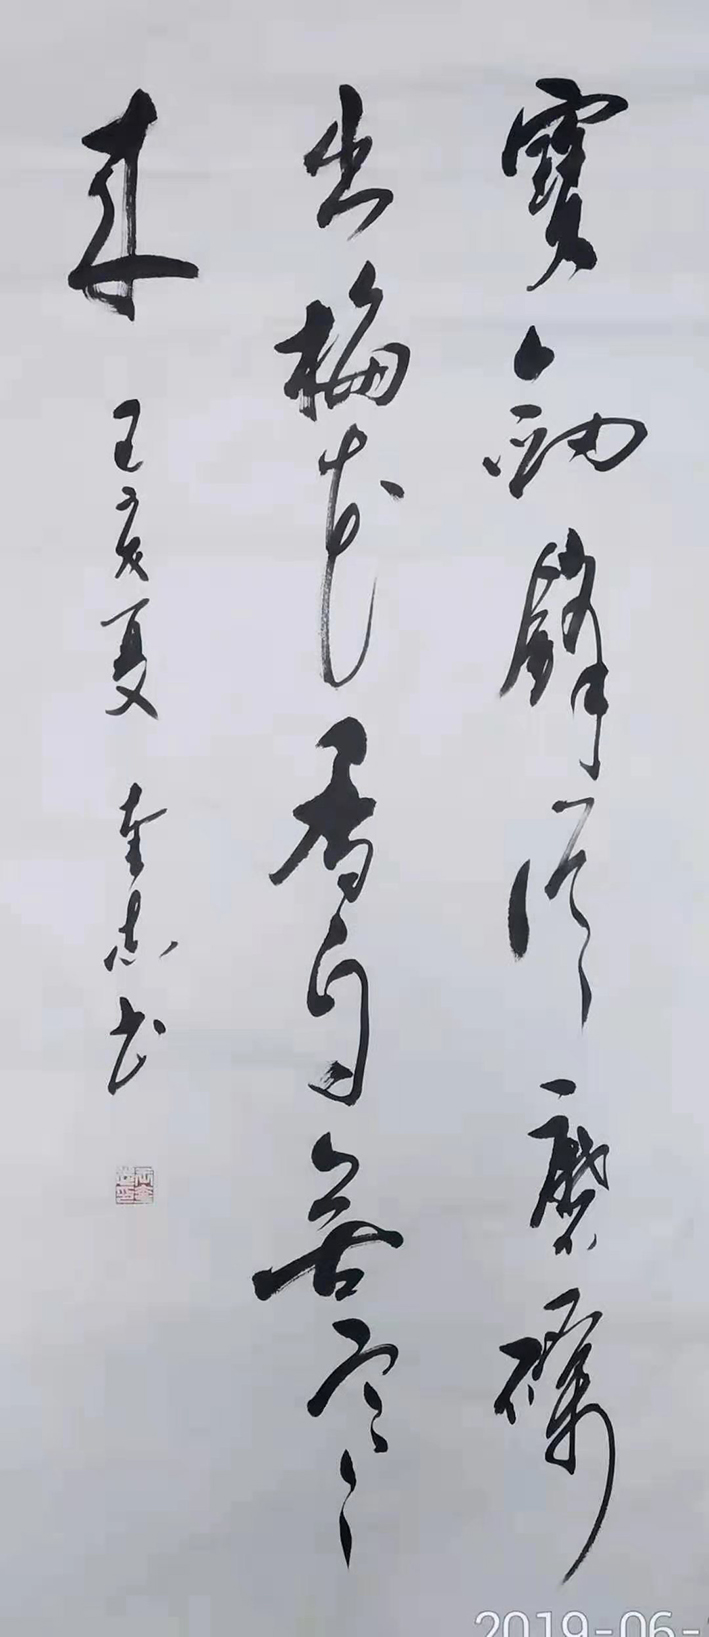 寶劍鋒從磨礪
出梅花香自苦寒
来 己亥夏 奎志书
2019-06-